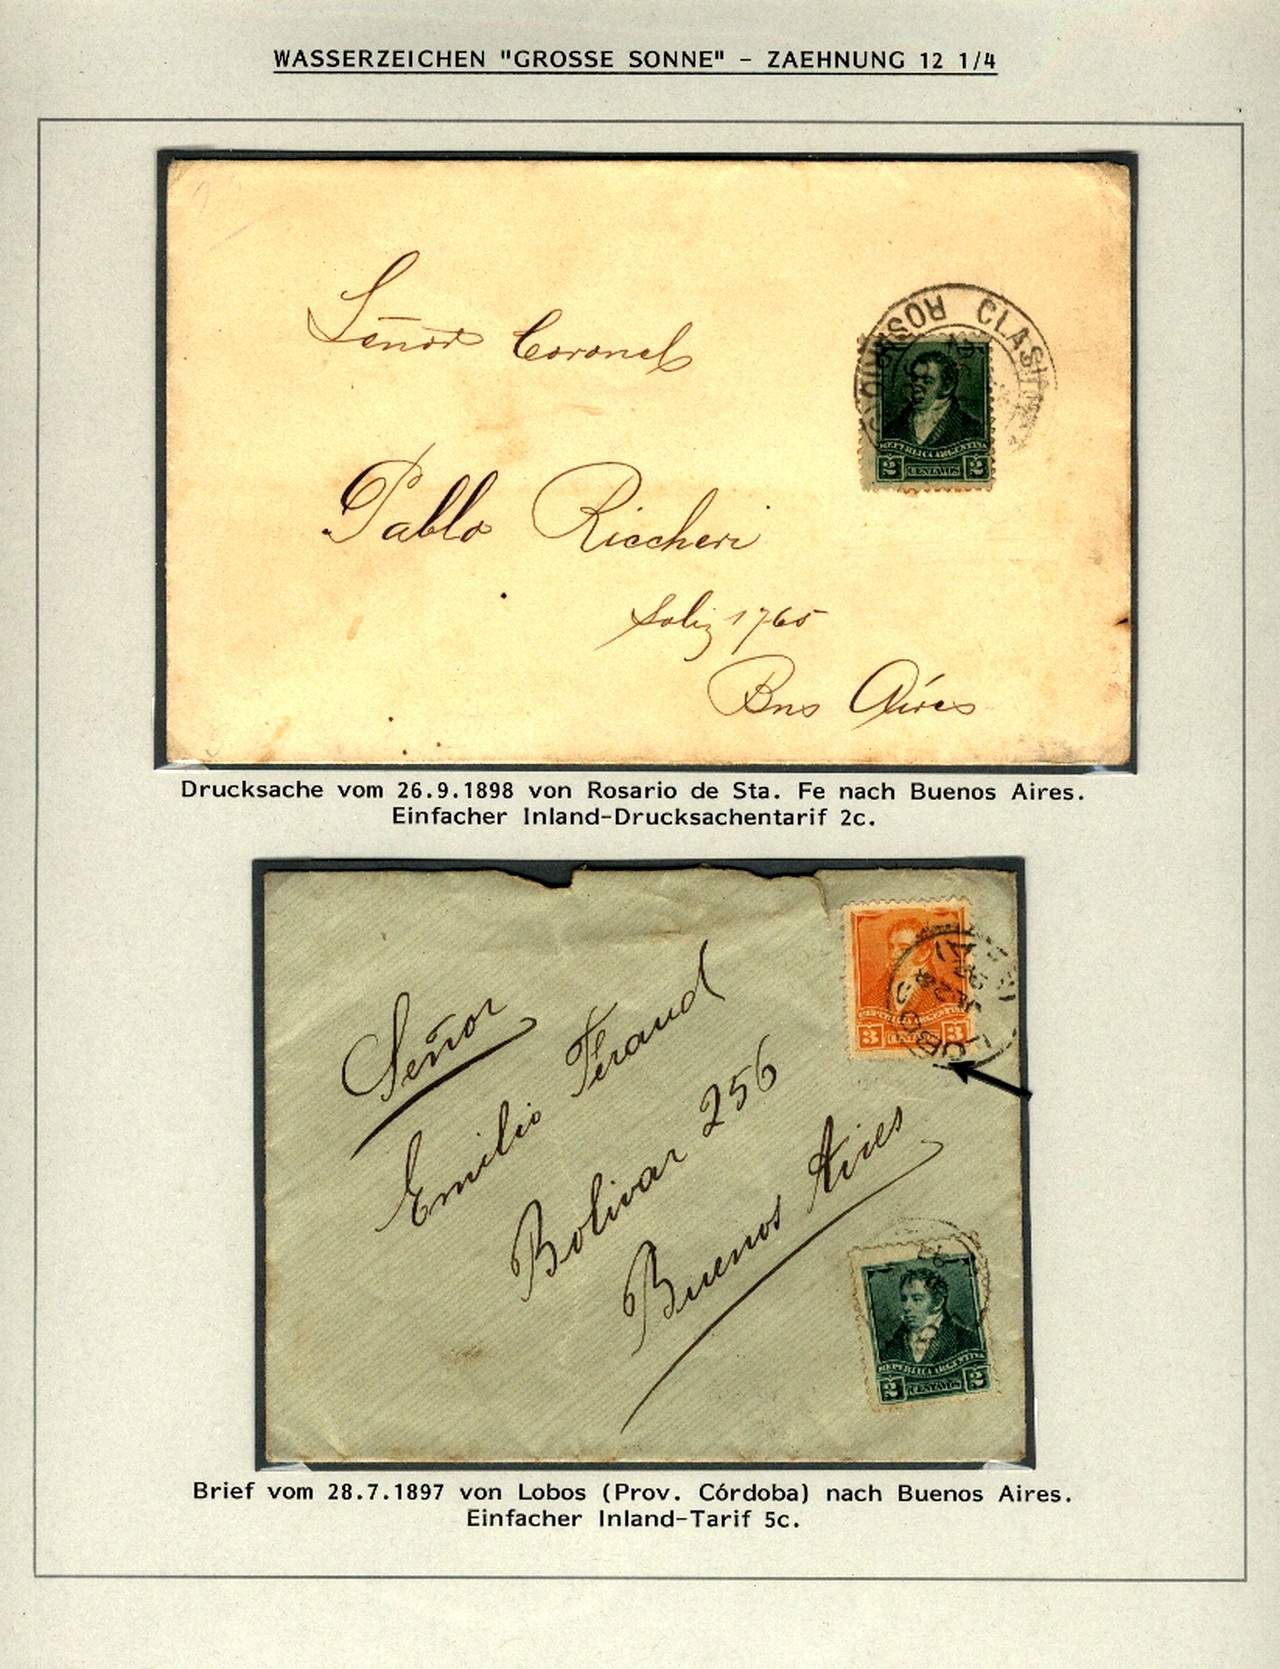 WASSERZEICHEN "GROSSE SONNE" - ZAEHNUNG 12 1/4
Señor Coronel
ROSARIO CLASI
REPUBLICA ARGENTINA
2 CENTAVOS 2
Pablo Riccheri
Soliz 1765
Bns Aires
Drucksache vom 26.9.1898 von Rosario de Sta. Fe nach Buenos Aires.
Einfacher Inland-Drucksachentarif 2c.
REPUBLICA ARGENTINA
3 CENTAVOS 3
LOBOS
Señor
Emilio Feraud
Bolivar 256
Buenos Aires
REPUBLICA ARGENTINA
2 CENTAVOS 2
Brief vom 28.7.1897 von Lobos (Prov. Córdoba) nach Buenos Aires.
Einfacher Inland-Tarif 5c.